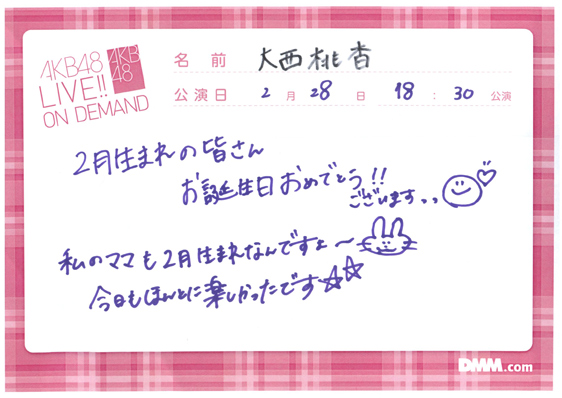 AKB48
LIVE!!
ON DEMAND
AKB
48
名前 大西桃香
公演日 2月28日 18:30公演
2月生まれの皆さん
お誕生日おめでとう!!
ございます、、
私のママも2月生まれなんですょ〜
今日もほんとに楽しかったです☆☆
DMM.com